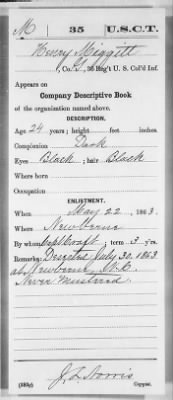 M 35 U.S.C.T.
Henry Miggitt
, Co. G, 35 Reg't U. S. Col'd Inf.
Appears on
Company Descriptive Book
of the organization named above.
DESCRIPTION.
Age 24 years; height feet inches.
Complexion Dark
Eyes Black; hair Black
Where born
Occupation
ENLISTMENT.
When May 22, 1863.
Where Newberne
By whom Capt Croft; term 3 y'rs.
Remarks: Deserted July 30, 1863
at Newberne N.C.
Never Mustered
J. L. Norris
Copyist.